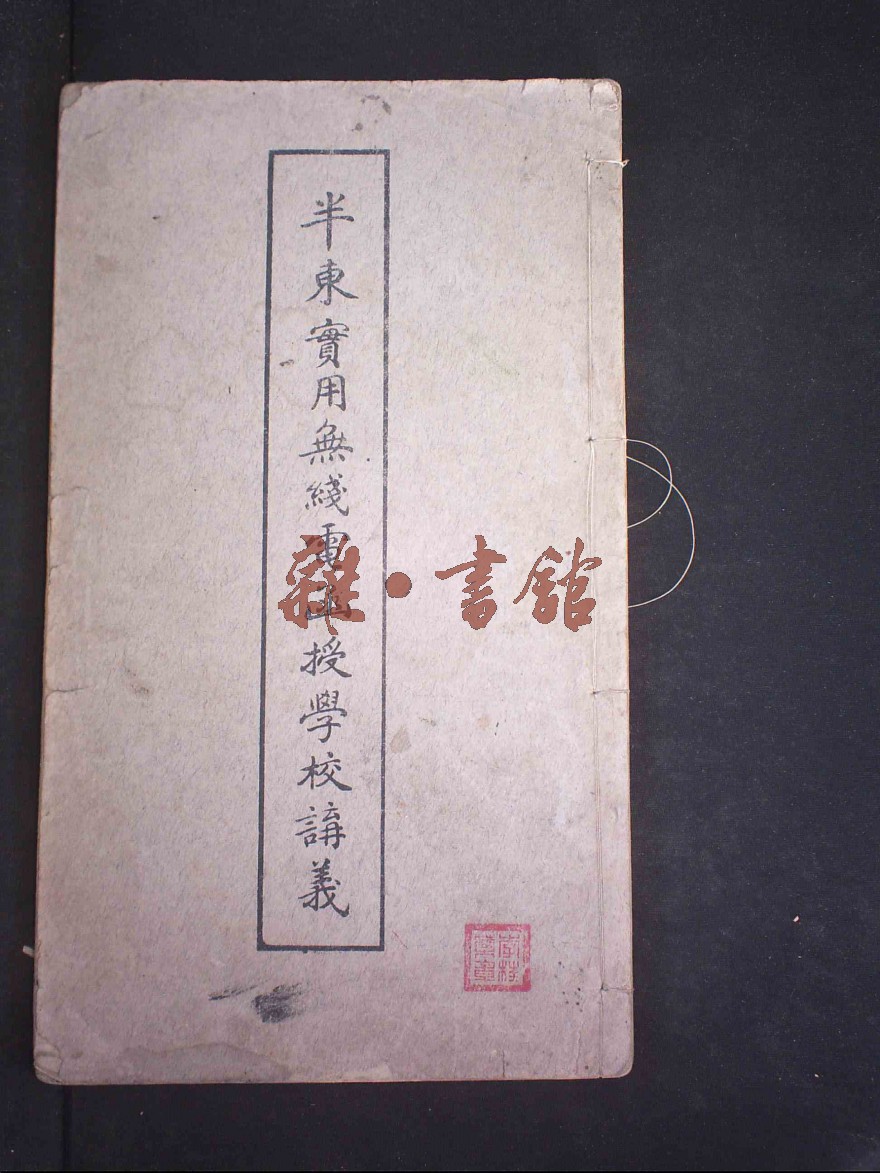 半東實用無綫電函授學校講義
雜·書館